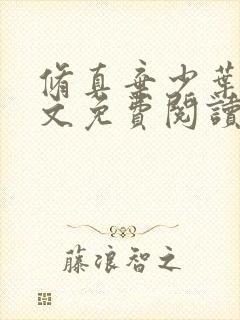 脩真棄少葉
文免費閱讀
藤浪智之